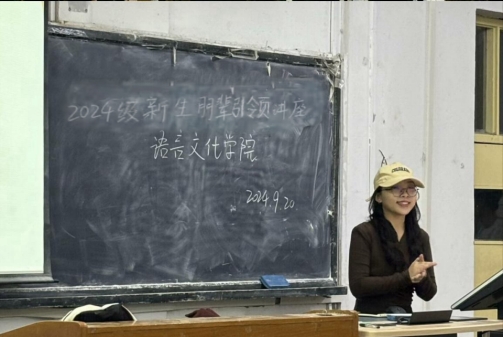 2024级新生朋辈引领讲座
语言文化学院
2024.9.20